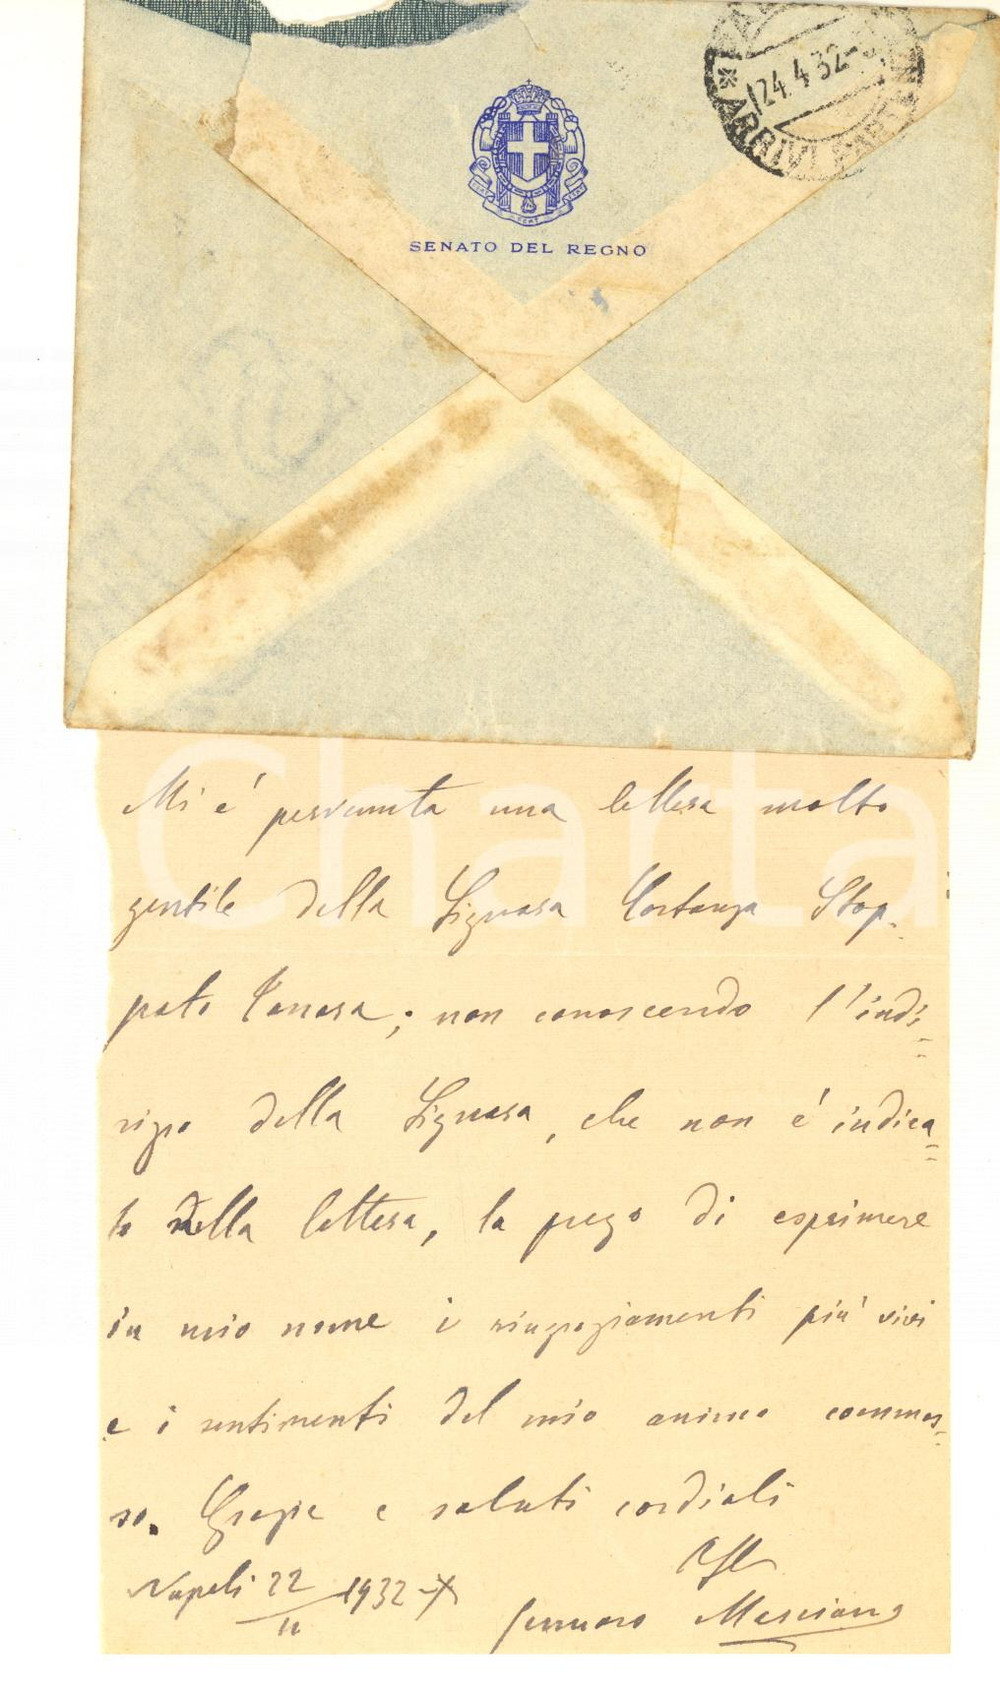 24.4.32
ARRIVI
SENATO DEL REGNO
FERT FERT FERT
Charta
Mi è pervenuta una lettera molto
gentile della Signora Costanza Stop-
pato Canosa; non conoscendo l'indi=
rizzo della Signora, che non è indica=
to nella lettera, la prego di esprimere
in mio nome i ringraziamenti più vivi
e i sentimenti del mio animo commos=
so. Grazie e saluti cordiali
Napoli 22 1932 X
Gennaro Marciano